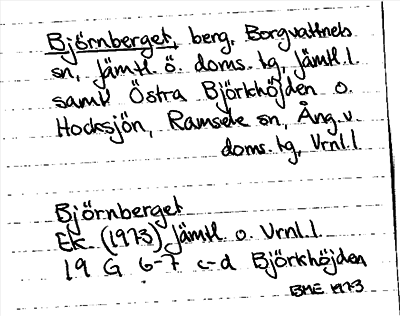 Björnberget, berg, Borgvattnets
sn, Jämtl. ö. doms. tg, Jämtl. l.
samt Östra Björkhöjden o.
Hocksjön, Ramsele sn, Ång. v.
doms. tg, Vrnl. l
Björnberget
Ek. (1973) Jämtl. o. Vrnl. l.
19 G 6-7 c-d Björkhöjden
BME 1973